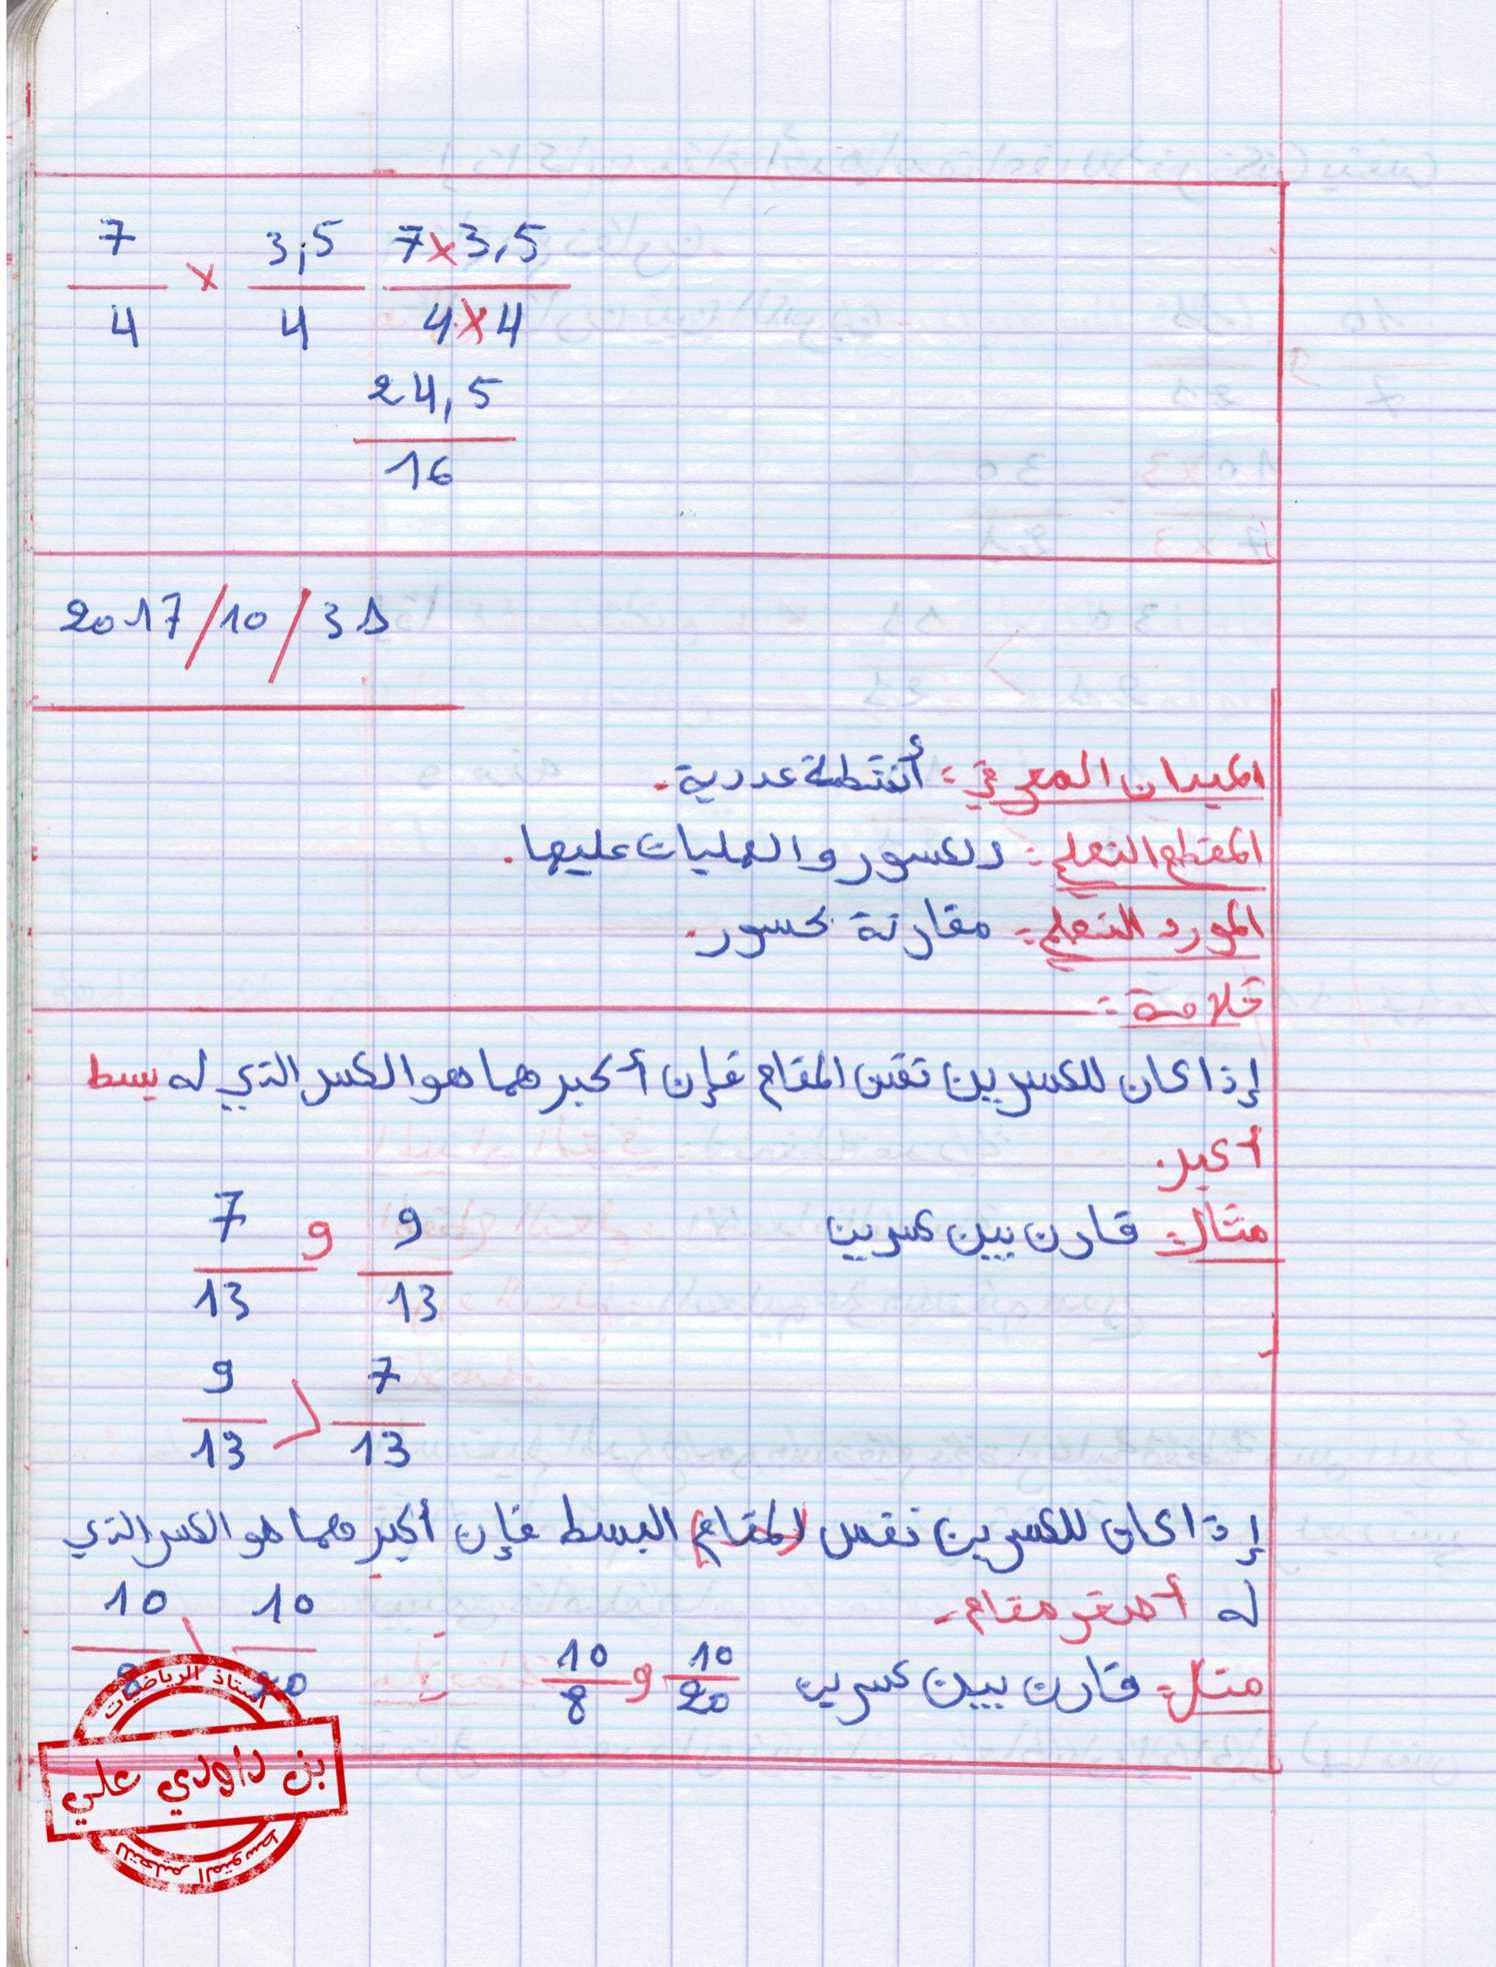 7/4 × 3,5/4 7×3,5/4×4
24,5/16
2017/10/31
الميدان المعرفي: أنشطة عددية.
المقطع التعلمي: الكسور والعمليات عليها.
المورد التعلمي: مقارنة كسور.
خلاصة:
إذا كان للكسرين نفس المقام فإن أكبرهما هو الكسر الذي له بسط
أكبر.
مثال: قارن بين كسرين 9/13 و 7/13
9/13 > 7/13
إذا كان للكسرين نفس (المقام) البسط فإن أكبرهما هو الكسر الذي
له أصغر مقام.
مثل: قارن بين كسرين 10/20 و 10/8
10/8 > 10/20
أستاذ الرياضيات
بن داودي علي
للتعليم المتوسط